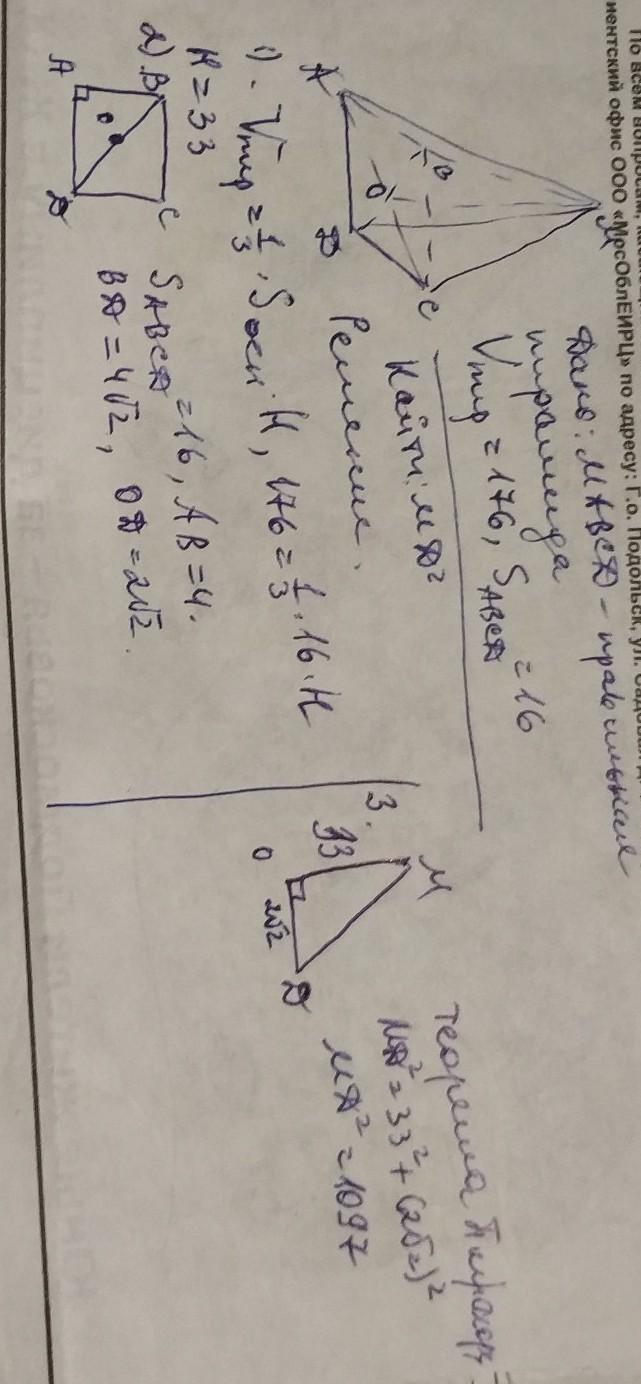 По всем вопросам, каса
иентский офис ООО «МрсОблЕИРЦ» по адресу: Г.о. Подольск, ул. Садовая д.
Дано: MABCD – правильная
пирамида
Vпир = 176, SABCD = 16
Найти: MD²
M
A
B
O
D
C
Решение.
1). Vпир = 1/3 · Sосн · H, 176 = 1/3 · 16 · H
H = 33
2) B
C
A
D
O
SABCD = 16, AB = 4.
BD = 4√2, OD = 2√2.
3.
M
33
O
2√2
D
Теорема Пифагора
MD² = 33² + (2√2)²
MD² = 1097